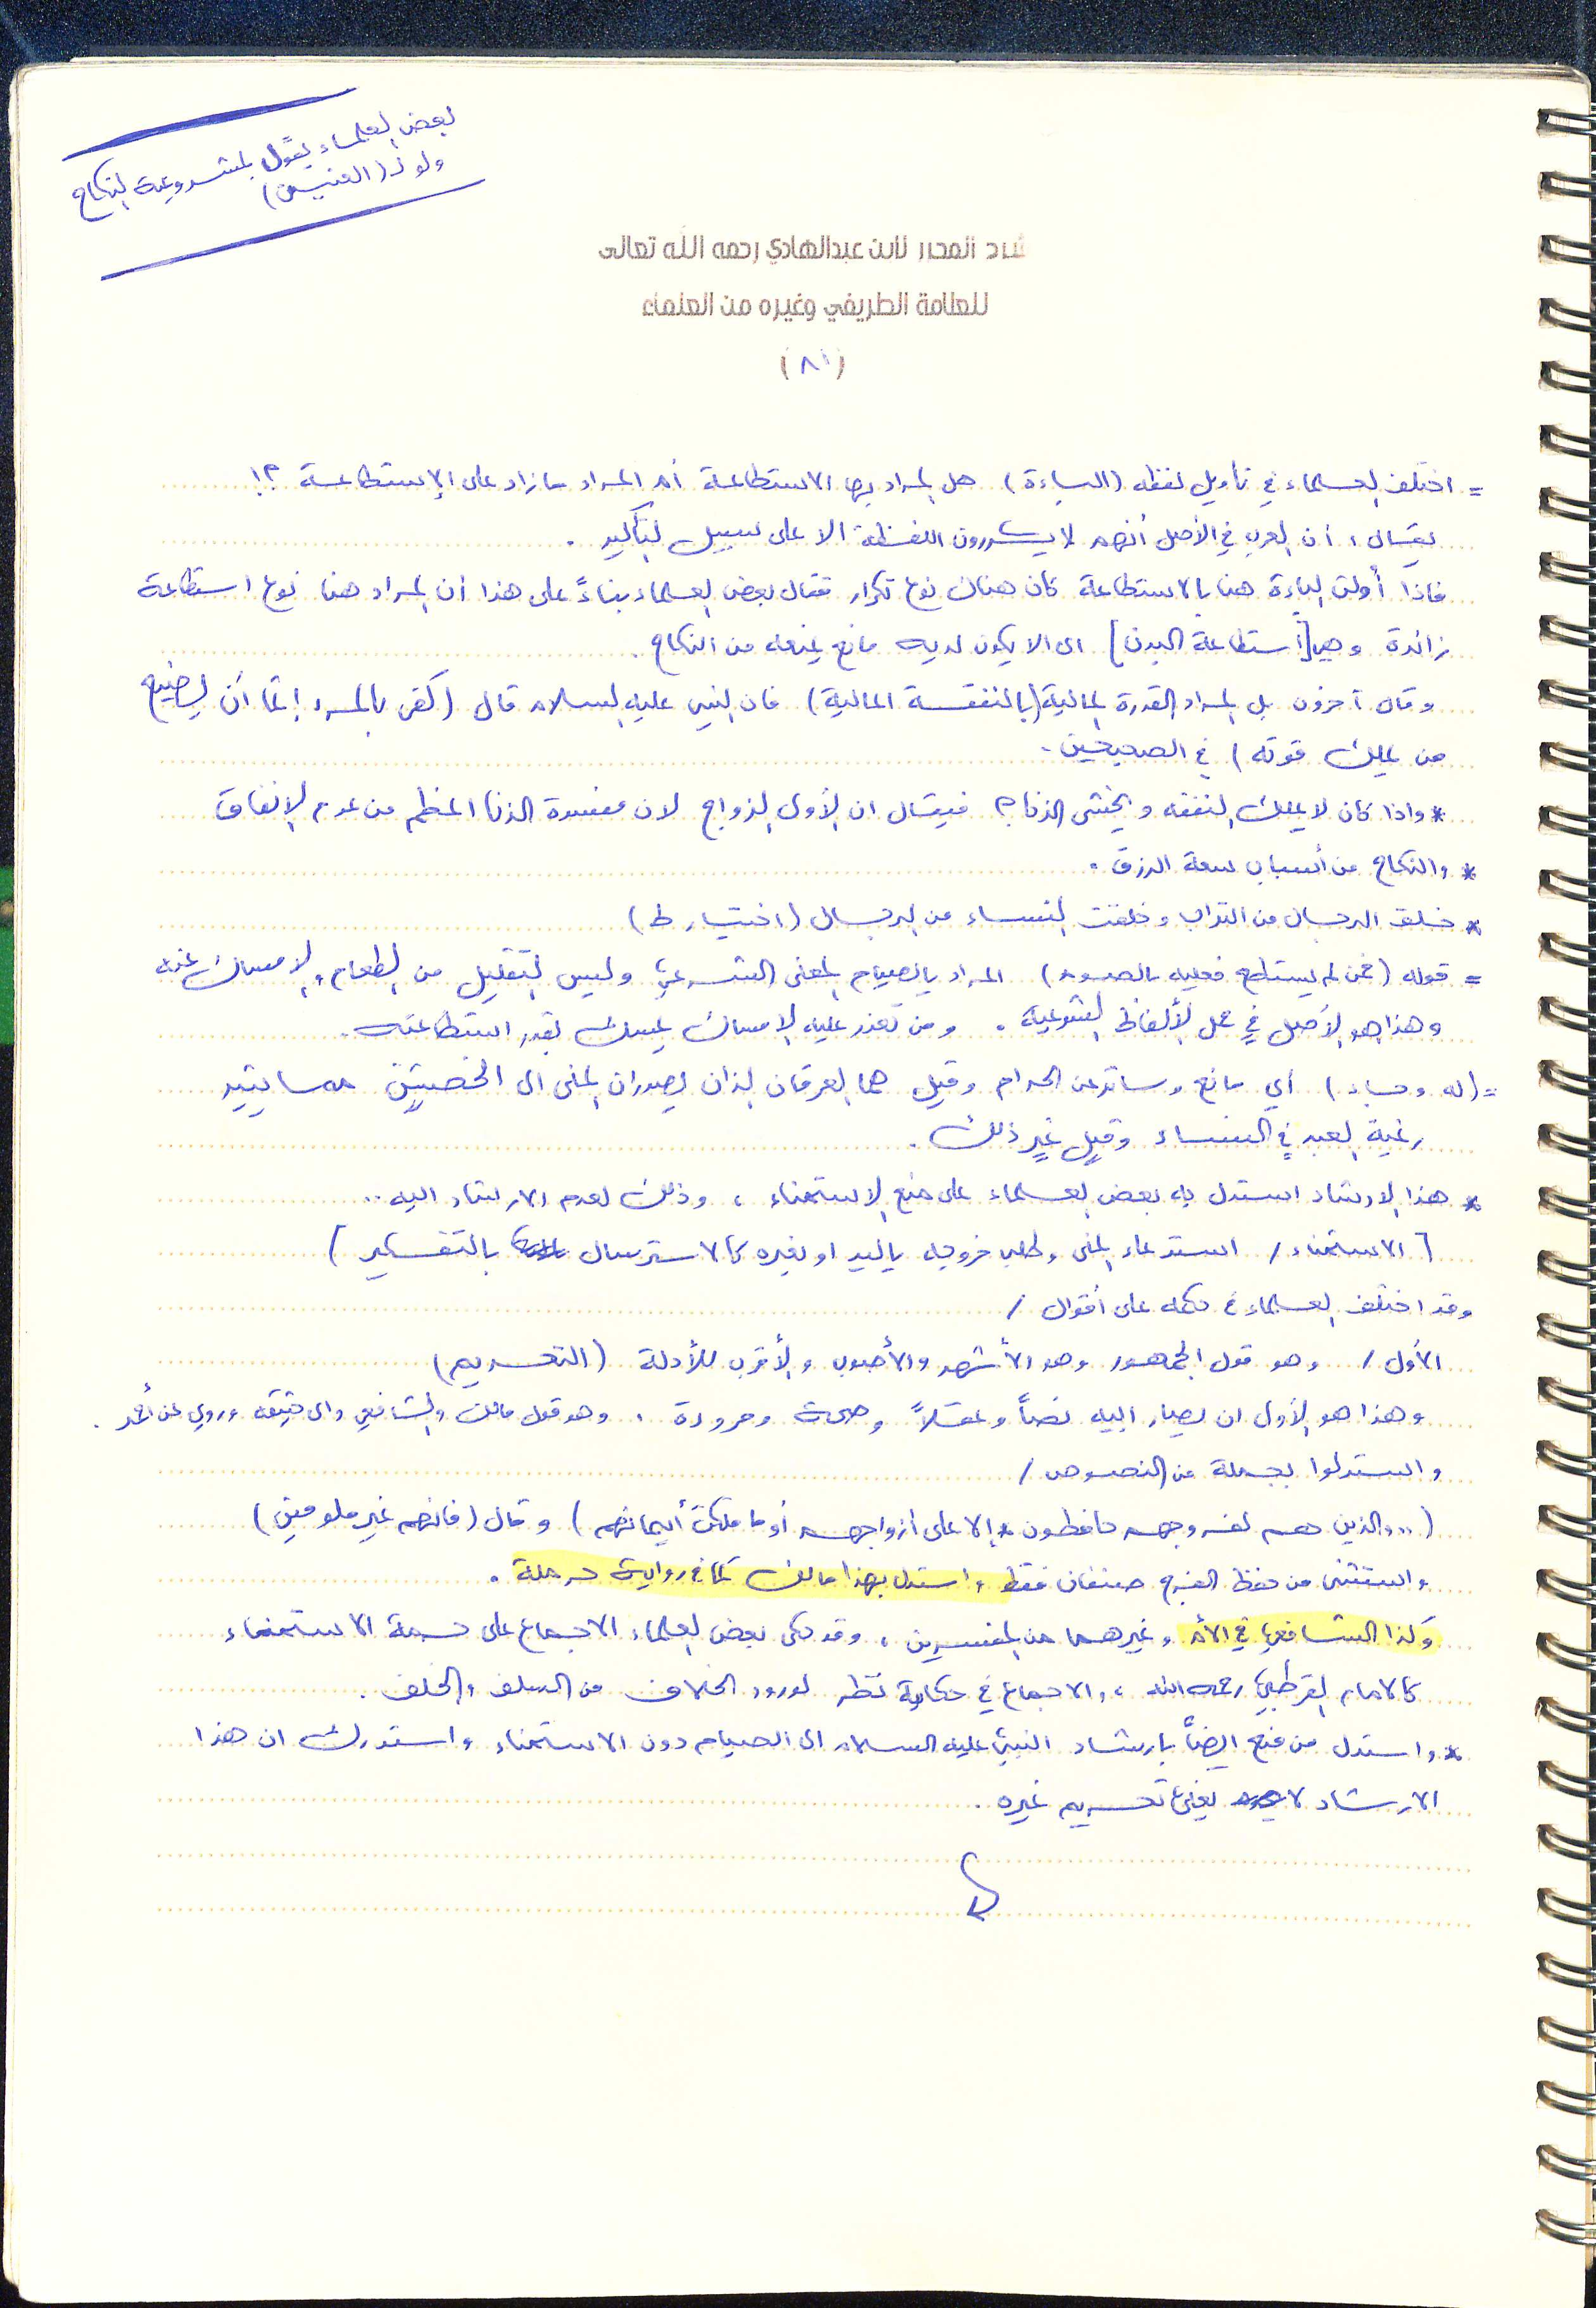 بعض العلماء يقول بمشروعية النكاح
ولو لـ(العنين)
شرح المحرر لابن عبدالهادي رحمه الله تعالى
للعلامة الطريفي وغيره من العلماء
(٨١)
= اختلف العلماء في تأويل لفظه (الباءة) هل المراد بها الاستطاعة أم المراد ما زاد على الإستطاعة ؟!
يقال ؛ أن العرب في الأصل أنهم لا يكررون اللفظة الا على سبيل التأكيد .
فاذا أولت الباءة هنا بالاستطاعة كان هناك نوع تكرار فقال بعض العلماء بناءً على هذا ان المراد هنا نوع استطاعة
زائدة وهي [استطاعة البدن] اى الا يكون لديه مانع يمنعه من النكاح .
وقال آخرون بل المراد القدرة المالية (بالنفقة المالية) فان النبي عليه السلام قال (كفى بالمرء إثماً أن يضيع
من يملك قوته) في الصحيحين .
* واذا كان لا يملك النفقه ويخشى الزنا ؟ فيقال ان الأولى الزواج لان مفسدة الزنا اعظم من عدم الإنفاق
* والنكاح من أسباب سعة الرزق .
* خلق الرجال من التراب وخلقت النساء من الرجال (اختيار ط)
= قوله (فمن لم يستطع فعليه بالصوم) المراد بالصيام المعنى الشرعي وليس التقليل من الطعام والامساك عنه
وهذا هو الأصل في حمل الألفاظ الشرعية . ومن تعذر عليه الامساك يمسك بقدر استطاعته .
= (له وجاء) أي مانع وساتر عن الحرام وقيل هما العرقان اللذان يصدران المنى الى الخصيتين مما يثير
رغبة العبد في النساء وقيل غير ذلك .
* هذا الارشاد استدل به بعض العلماء على منع الاستمناء ، وذلك لعدم الارشاد اليه ..
[ الاستمناء / استدعاء المنى وطلب خروجه باليد او بغيره كالاسترسال بالتفكير ]
وقد اختلف العلماء في حكمه على أقوال /
الأول / وهو قول الجمهور وهو الأشهر والأصوب والأقرب للأدلة (التحريم)
وهذا هو الأولى ان يصار اليه نصاً وعقلاً وصحة ومرودة ، وهو قول مالك والشافعي وابي حنيفه وروي عن أحمد .
واستدلوا بجملة من النصوص /
(.. والذين هم لفروجهم حافظون * إلا على أزواجهم أو ما ملكت أيمانهم) وقال (فانهم غير ملومين)
واستثنى من حفظ الفرج صنفان فقط واستدل بهذا مالك كما في رواية حرملة .
وكذا الشافعي في الأم وغيرهما من المفسرين ، وقد حكى بعض العلماء الاجماع على حرمة الاستمناء
كالامام القرطبي رحمه الله ، والاجماع في حكايته نظر لورود الخلاف من السلف والخلف .
* واستدل من منع ايضاً بارشاد النبي عليه السلام الى الصيام دون الاستمناء واستدرك ان هذا
الارشاد لا يعني تحريم غيره .